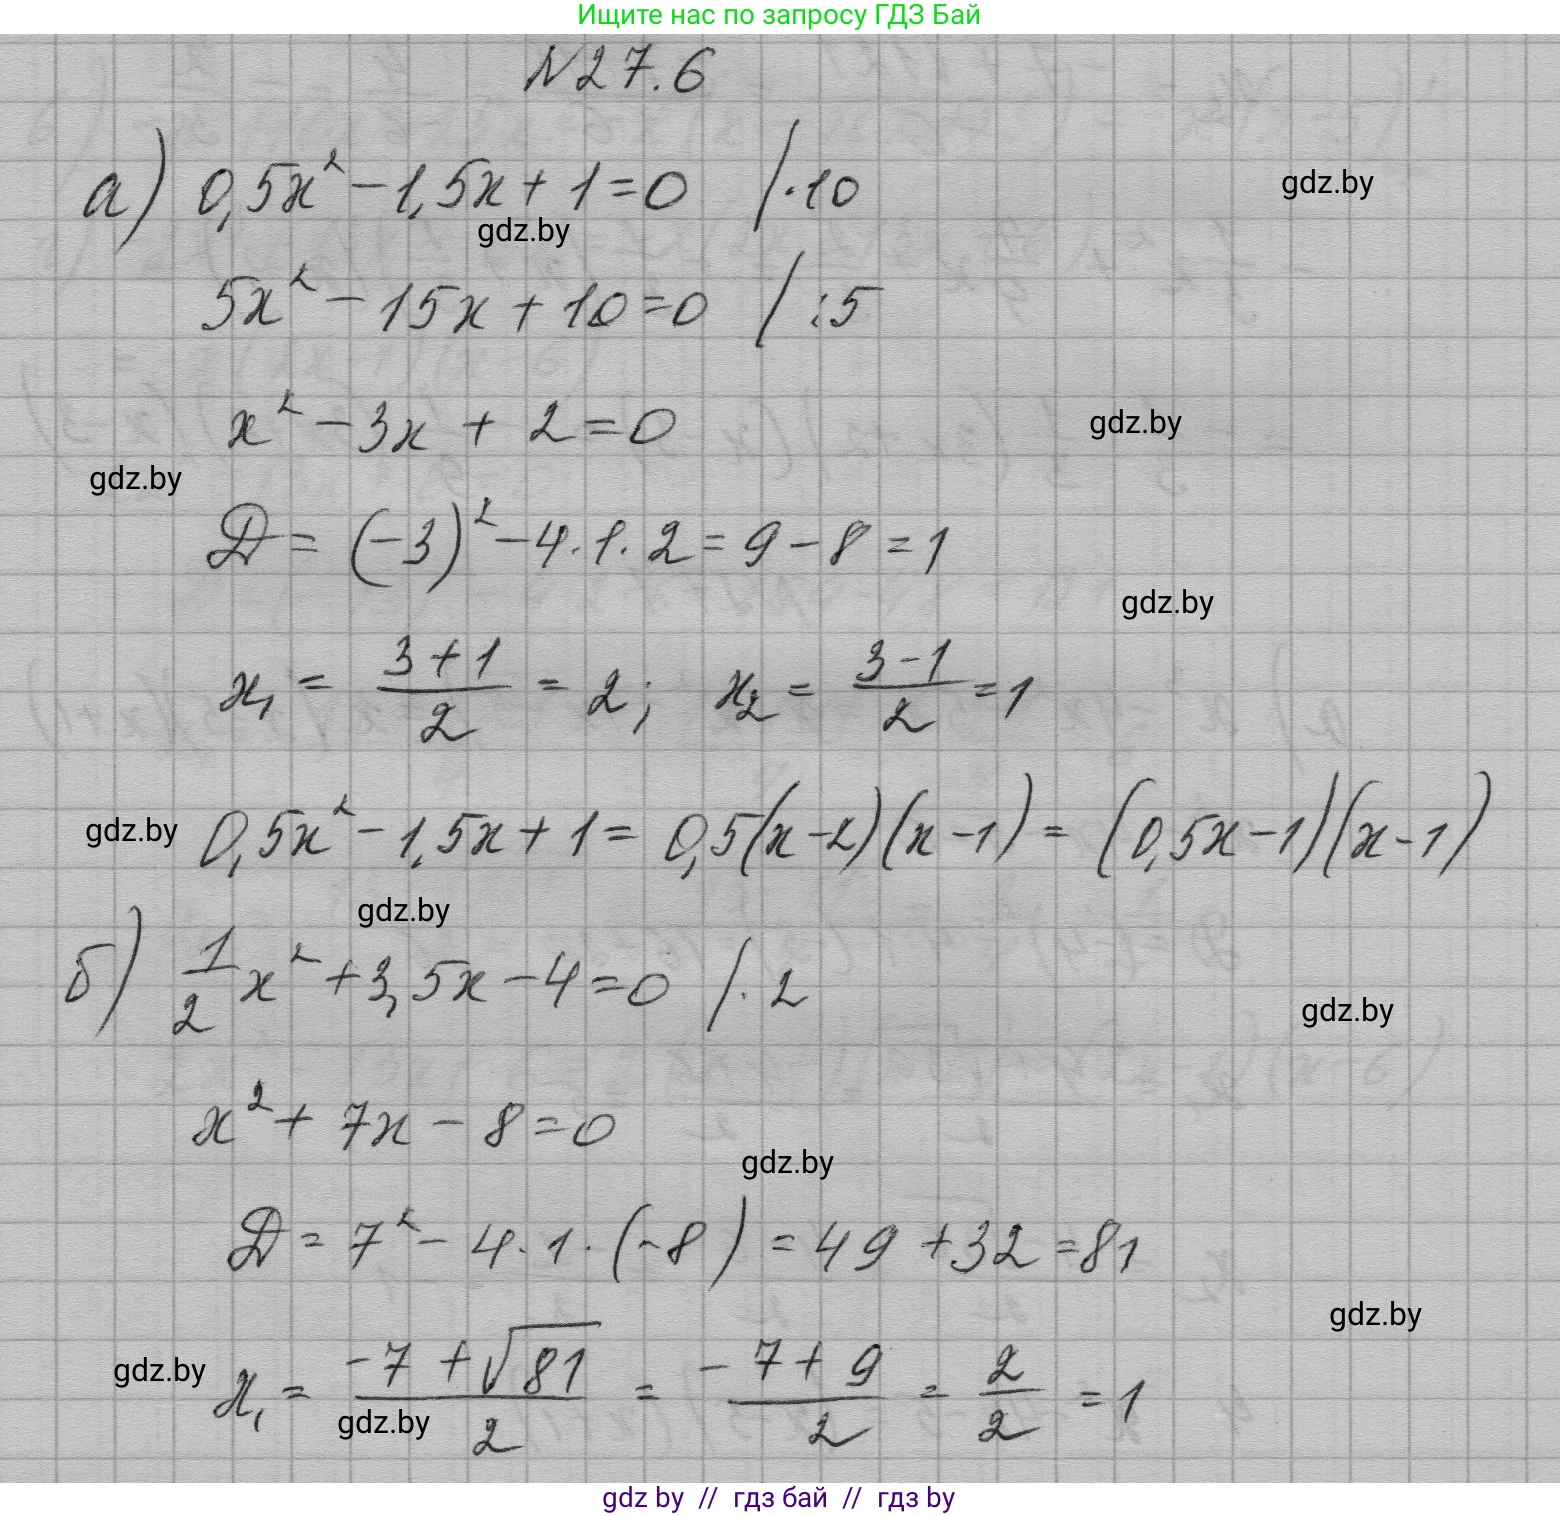 Ищите нас по запросу ГДЗ Бай
№27.6
а) 0,5x² - 1,5x + 1 = 0 / · 10
gdz.by
gdz.by
5x² - 15x + 10 = 0 / : 5
x² - 3x + 2 = 0
gdz.by
gdz.by
D = (-3)² - 4 · 1 · 2 = 9 - 8 = 1
gdz.by
x₁ = (3 + 1)/2 = 2; x₂ = (3 - 1)/2 = 1
gdz.by
0,5x² - 1,5x + 1 = 0,5(x - 2)(x - 1) = (0,5x - 1)(x - 1)
gdz.by
б) 1/2 x² + 3,5x - 4 = 0 / · 2
gdz.by
x² + 7x - 8 = 0
gdz.by
D = 7² - 4 · 1 · (-8) = 49 + 32 = 81
gdz.by
gdz.by
x₁ = (-7 + √81)/2 = (-7 + 9)/2 = 2/2 = 1
gdz.by
gdz by // гдз бай // гдз by